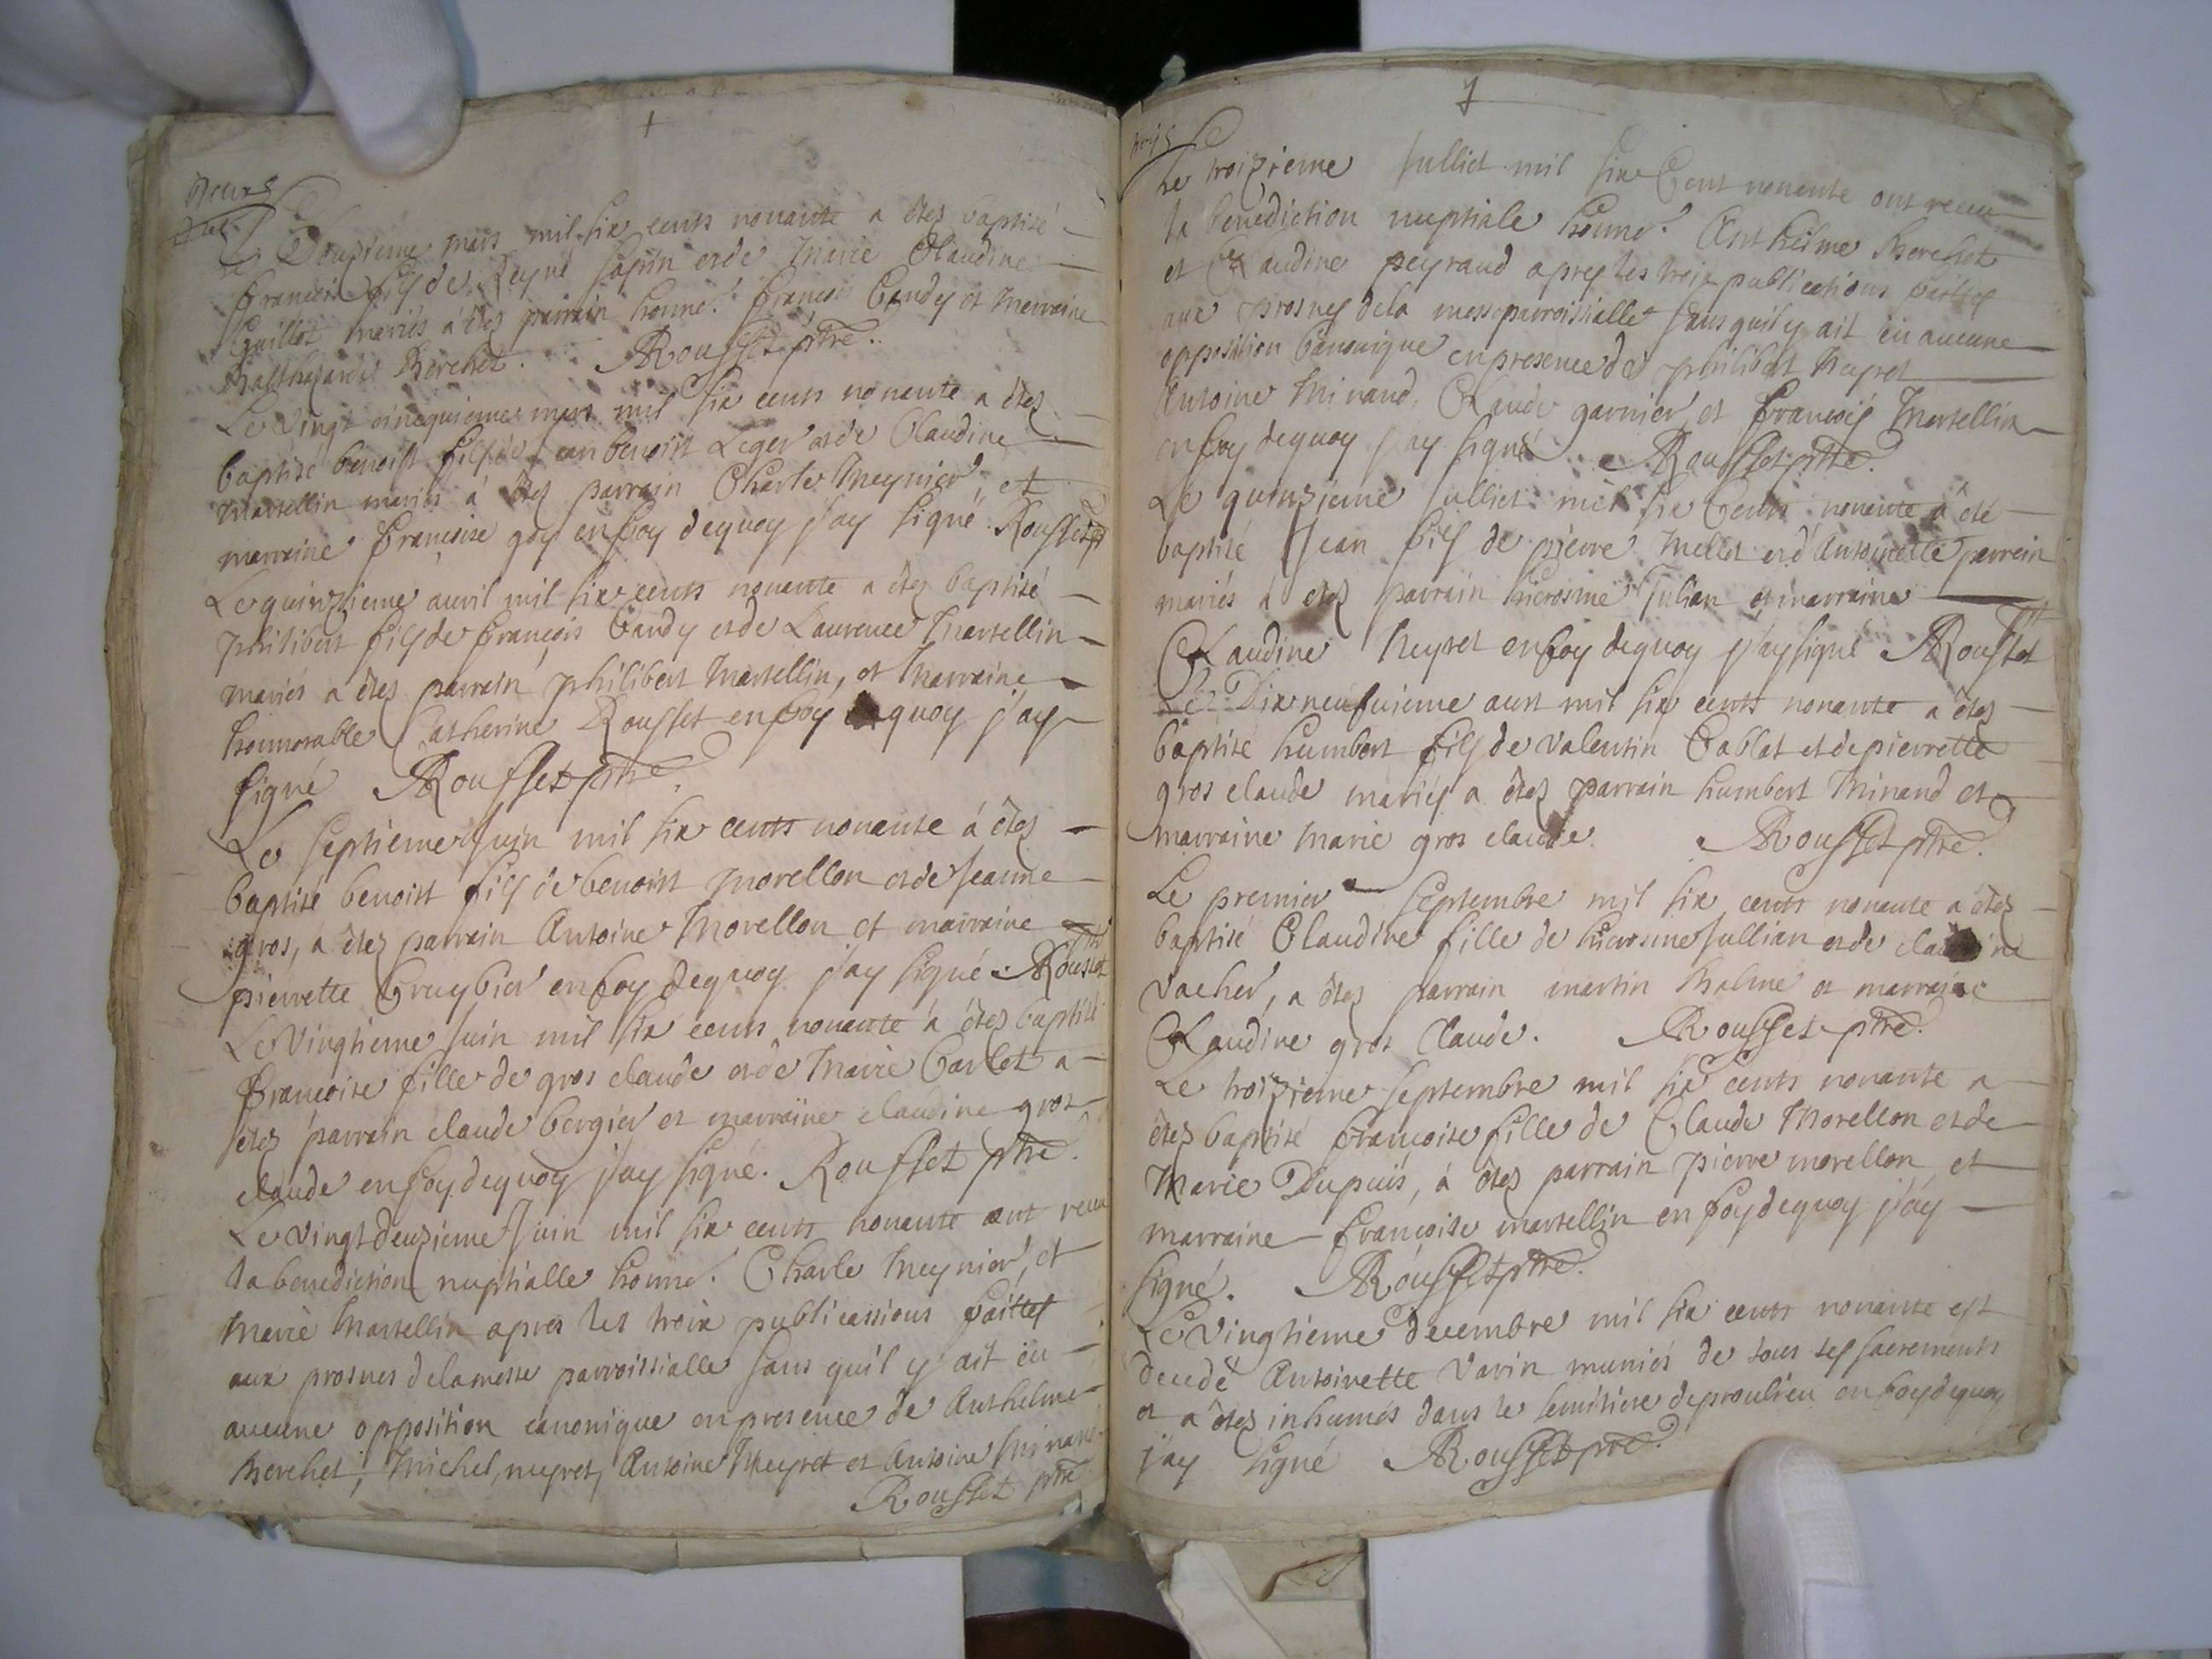 Le Douzieme mars mil six cents nonante a étez baptisé
françois fils de Reyné sapin et de Marie Claudine
Guillot mariés a étez parrain honnē. françois Candy et marraine
Balthazarde Berchet. Rousset ptre.
Le vingt cinequieme mars mil six cents nonante a étez
baptisé benoist fils de Jean benoist Leger et de Claudine
Martellin mariés á étez parrain Charle Meynier et
marraine françoise goy en foy dequoy j'ay signé Rousset ptre
Le quinzieme auril mil six cents nonante a étez baptisé
philibert fils de françois Candy et de Laurence Martellin
mariés a étez parrain philibert Martellin, et Marraine
honnorable Catherine Rousset en foy dequoy j'ay
signé Rousset ptre
Le septieme Juin mil six cents nonante á étez
baptisé benoist fils de benoist Morellon et de Jeanne
gros, a étez parrain Antoine Morellon et marraine
pierrette Cruybier en foy dequoy j'ay signé Rousset ptre
Le Vingtieme Juin mil six cents nonante a étez baptisé
françoise fille de gros claude et de Marie Carlet a
étez parrain claude bergier et marraine claudine gros
claude en foy dequoy j'ay signé. Rousset ptre.
Le vingt deuzieme Juin mil six cents nonante ont receu
la benediction nuptialle honnē. Charle Meynier, et
Marie Martellin apres les troix publicassions faittes
aux prosnes de la messe parroissialle sans qu'il y ait eu
aucune opposition canonique en presence de Anthelme
Berchet, Michel, neyret, Antoine Neyret et Antoine Minand
Rousset ptre
Le troizieme Julliet mil six Cent nonante ont receu
la benediction nuptiale honnē. Anthelme Berchet
et Claudine peyraud apres les troix publications faittes
aux prosnes de la messe parroissialle sans quil y ait eu aucune
opposition Canonique en presence de philibert Neyret
Antoine Minaud, Claude garnier, et françois Martellin
en foy dequoy j'ay signé Rousset ptre.
Le quinzieme Julliet mil six Cents nonante a été
baptisé Jean fils de pierre Mellet et d'Antoinette perrein
mariés a étez parrain hierosme Julian et marraine
Claudine Neyret en foy dequoy j'ay signé Rousset ptre
Le Dix neufuieme aust mil six cents nonante a étez
baptisé humbert fils de valentin Cablat et de pierrette
gros claude mariés a étez parrain humbert Minand et
marraine Marie gros claude Rousset ptre.
Le premier septembre mil six cents nonante a étez
baptisé Claudine fille de hierosme Jullian et de claudine
vacher, a étez parrain martin Balme et marraine
Claudine gros Claude. Rousset ptre.
Le troizieme septembre mil six cents nonante a
étez baptisé françoise fille de Claude Morellon et de
Marie Dupuis, á étez parrain pierre morellon, et
marraine françoise martellin en foy dequoy j'ay
signé. Rousset ptre.
Le Vingtieme decembre mil six cents nonante est
decedé Antoinette Varin muniés de tous les sacrements
et a étez inhumés dans le semitiere de proulieu en foy dequoy
j'ay signé Rousset ptre.